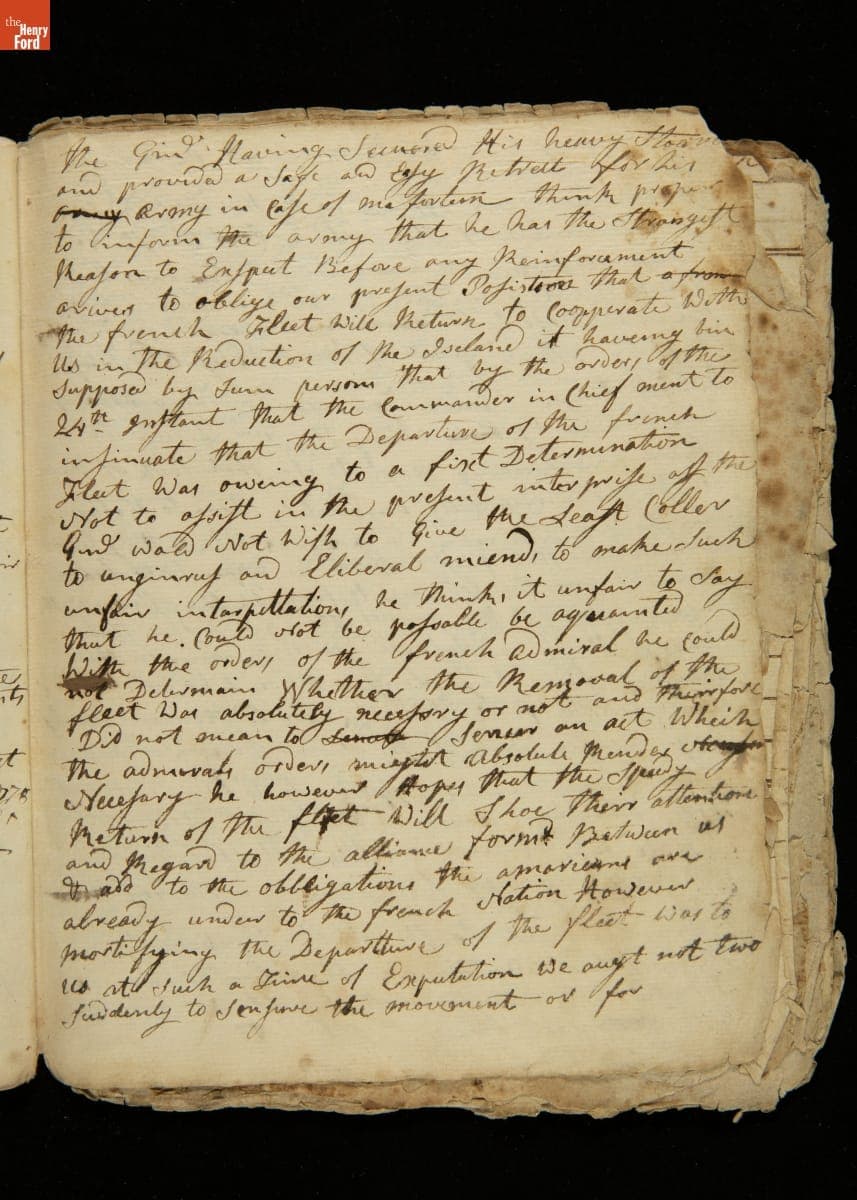 the
Henry
Ford
the Ginl Having Secured His heavy Stores
and provided a Safe and Easy Retrett for his
army army in Case of misfortun think proper
to inform the army that he has the Strongest
Reason to Exspect Before any Reinforcement
arives to oblige our present Posistions that a from
the french Fleet Will Return to Cooperate With
Us in the Reduction of the Iseland it haveing bin
Supposed by Sum persons that by the orders of the
24th Instant that the Commander in Chief ment to
insinuate that the Departure of the french
Fleet Was oweing to a fixt Determination
Not to assist in the present interprise as the
Ginl wold Not Wish to Give the Least Coller
to unginrus and Eliberal miends to make Such
unfair intarpittations he thinks it unfair to Say
that he Could Not be possable be aquainted
With the orders of the french admiral he Could
not Determain Whether the Removal of the
fleet Was absolutely necessory or not and therrfore
Did not mean to Senser an act Which
the admirals orders mieght absolute Render
Necessary he however Hopes that the Speedy
Return of the fleet Will Shoe therr attention
and Regard to the alliance formd Between us
& add to the obbligations the amaricans are
already under to the french Nation However
mortifying the Departture of the fleet was to
us at Such a Time of Expectation We augt not two
Suddenly to Sensure the movement or for